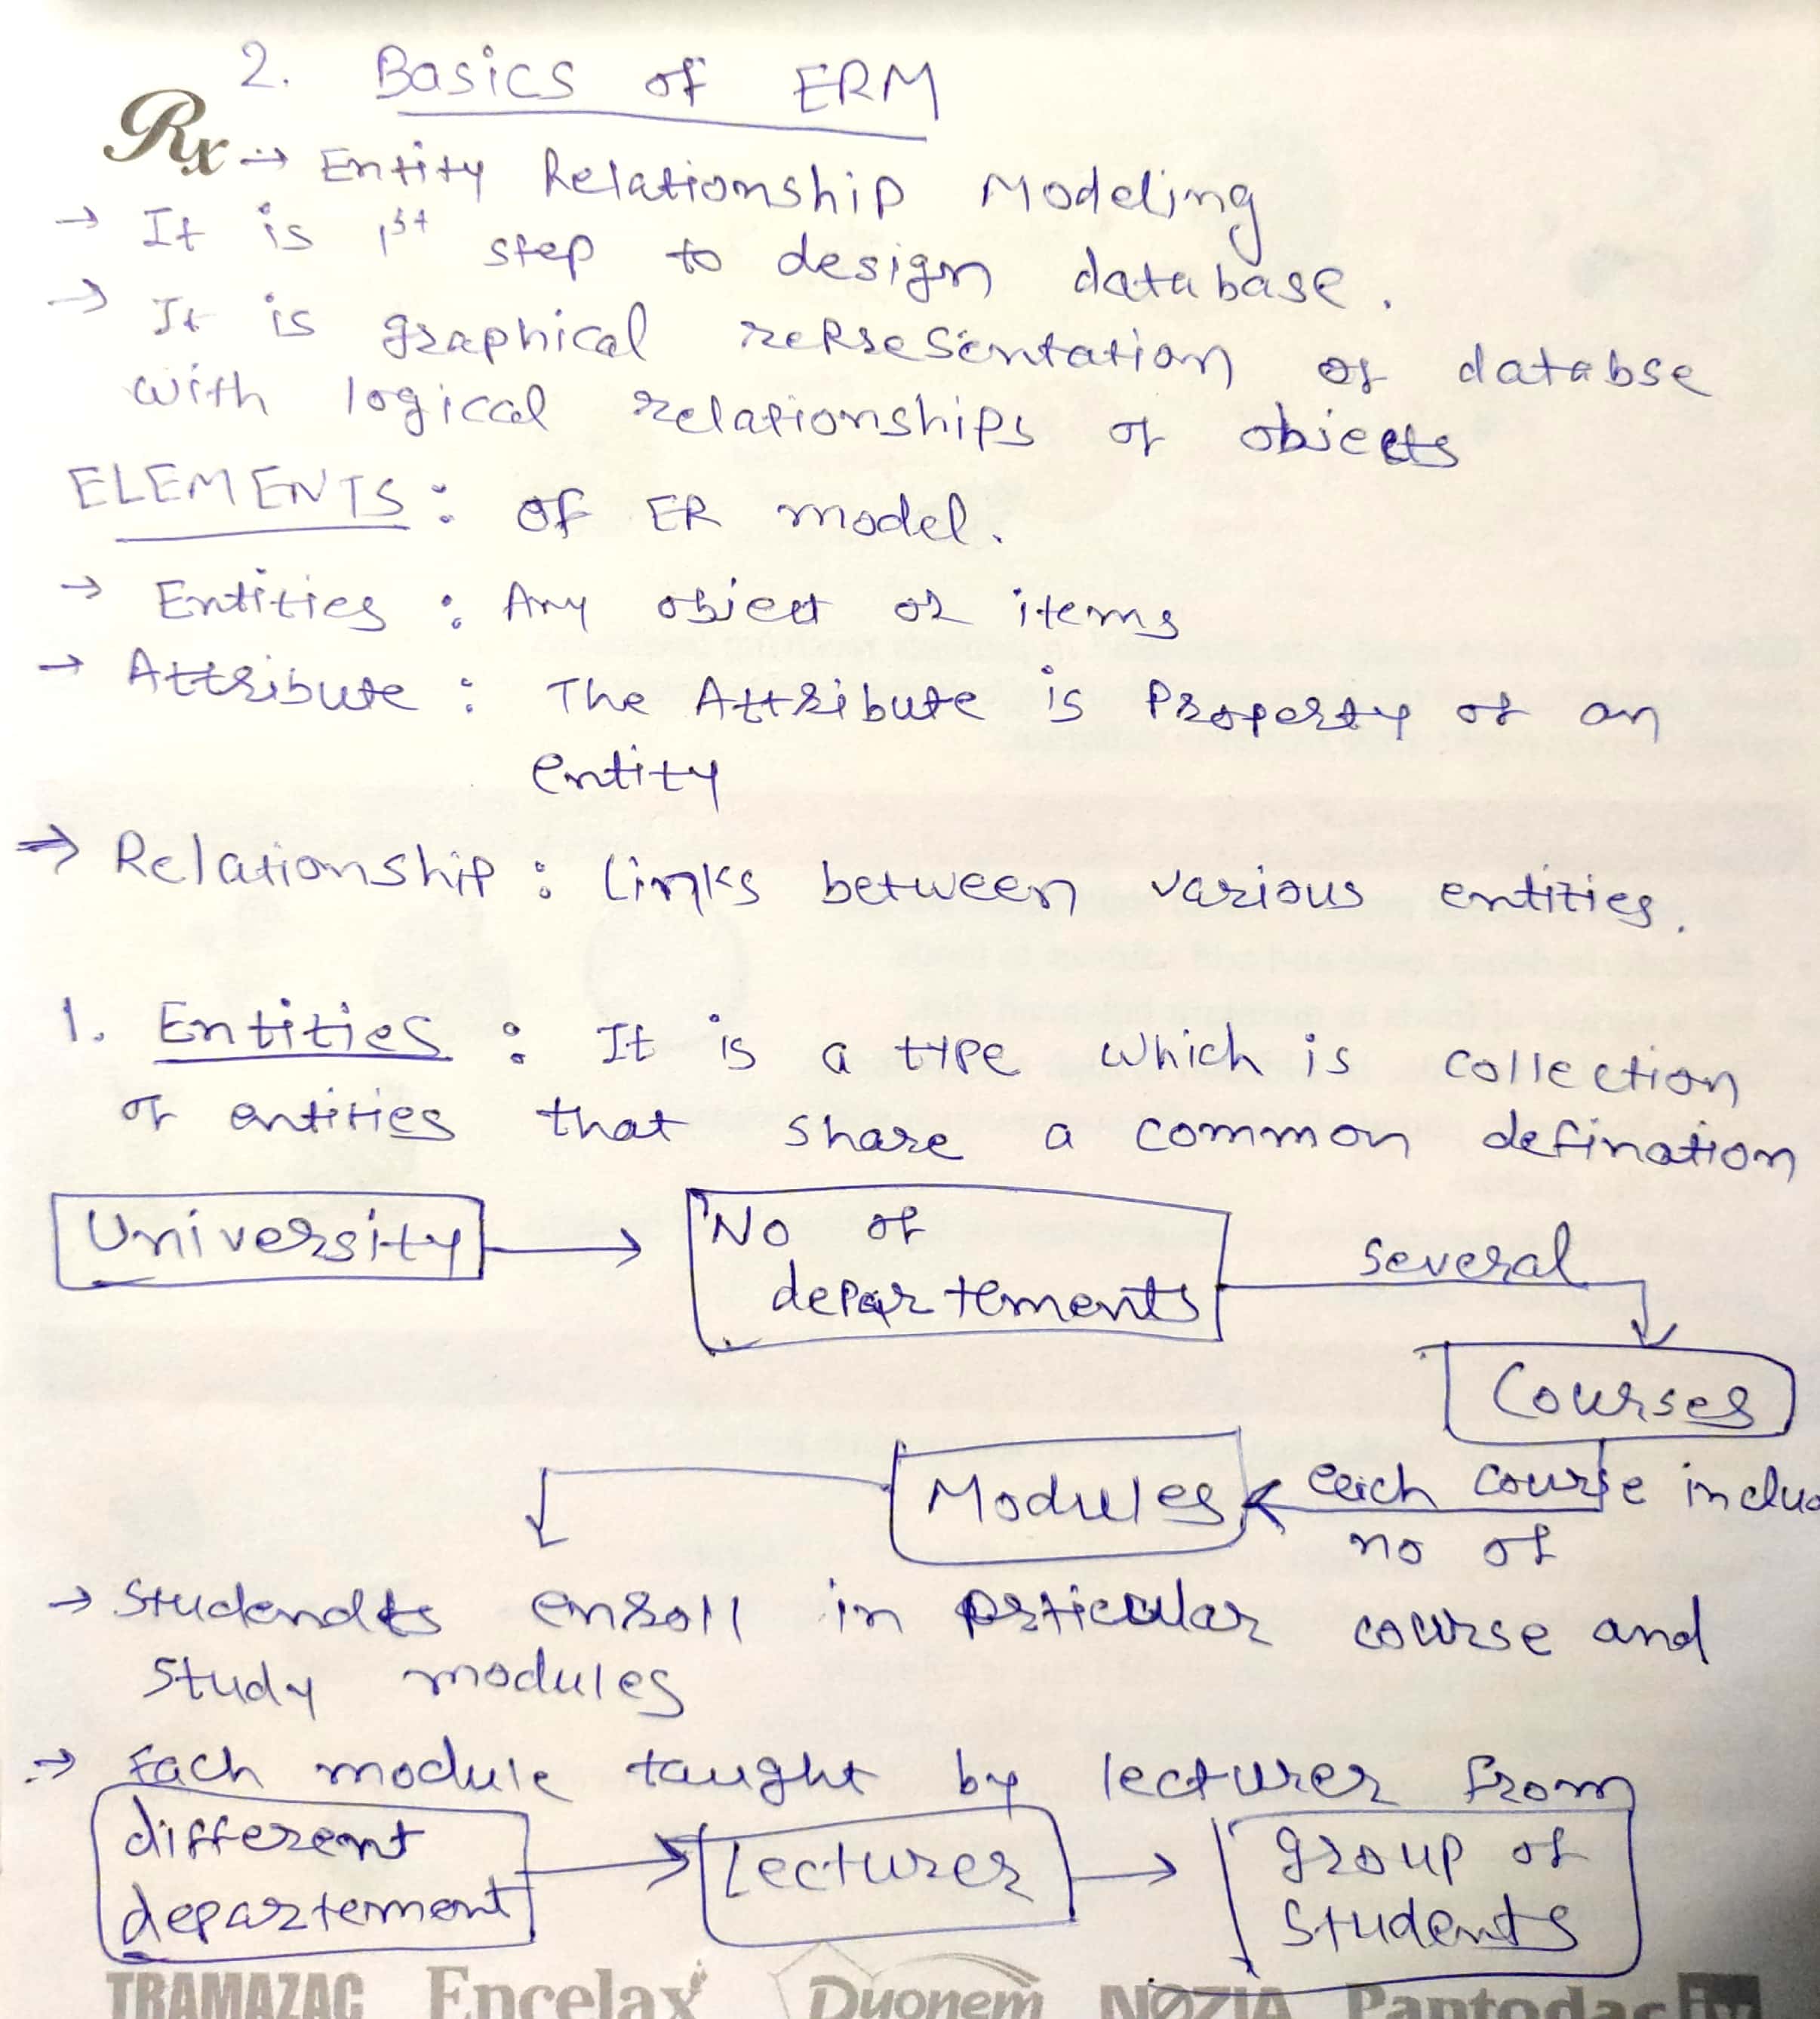 2. Basics of ERM
Rx → Entity Relationship Modeling
→ It is 1st step to design database.
→ It is graphical representation of databse
with logical relationships of objects
ELEMENTS : of ER model.
→ Entities : Any object or items
→ Attribute : The Attribute is Property of an
entity
→ Relationship : Links between various entities.
1. Entities : It is a type which is collection
of entities that share a common defination
University → No of
departements
several
Courses
Modules ← each course inclu
no of
→ Studendts enroll in prticular course and
study modules
→ Each module taught by lecturer from
different
departement → Lecturer → group of
students
TRAMAZAC Encelax Duonem NOZIA Pantodac iv